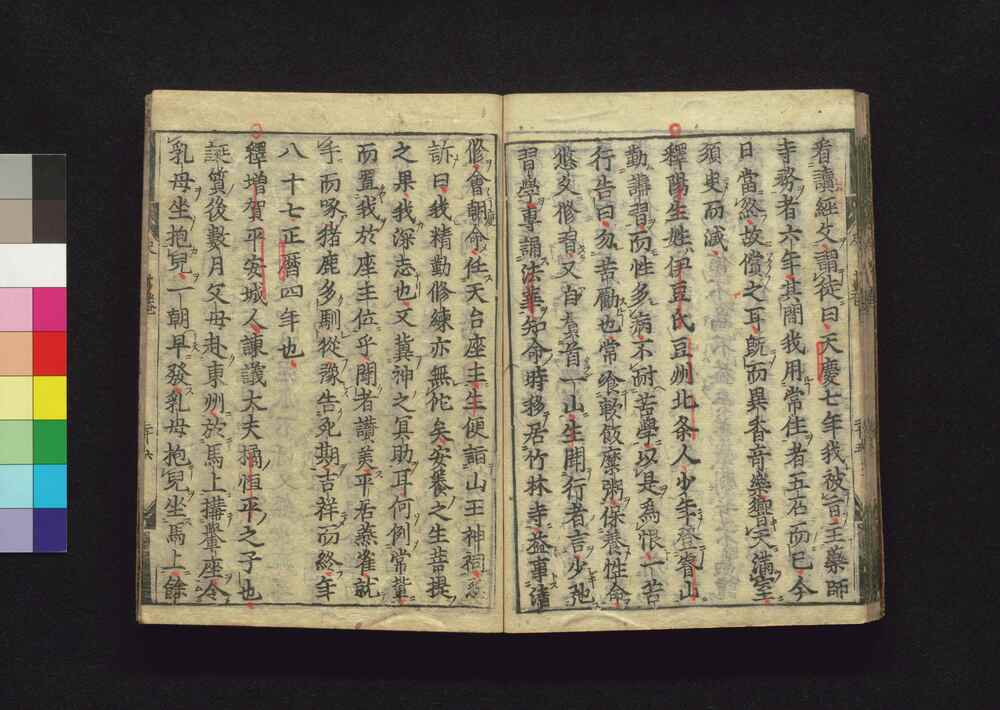 看讀經文謂徒曰天慶七年我被旨主藥師
寺務者六年其間我用常住者五石而已今
日當終故償之耳既而異香音樂響天滿室
須臾而滅
釋陽生姓伊豆氏豆州北条人少年登睿山
勤講習而性多病不耐苦學以是為恨一苦
行告曰勿苦勵也常飡軟飯糜粥保養性命
懲文修習又白首一山生聞行者言少弛
習學專誦法華知命時移居竹林寺益事清
修會朝命任天台座主生便詣山王神祠
訴曰我精勤修練亦無佗矣安養之生菩提
之果我深志也又冀神之冥助耳何例常輩
而置我於座主位乎聞者讚美平居燕雀就
手而啄猪鹿多馴從豫告死期吉祥而終年
八十七正曆四年也
釋增賀平安城人諫議大夫橘恒平之子也
誕質後數月父母赴東州於馬上搆輦座令
乳母坐抱兒一朝早發乳母抱兒坐馬上餘